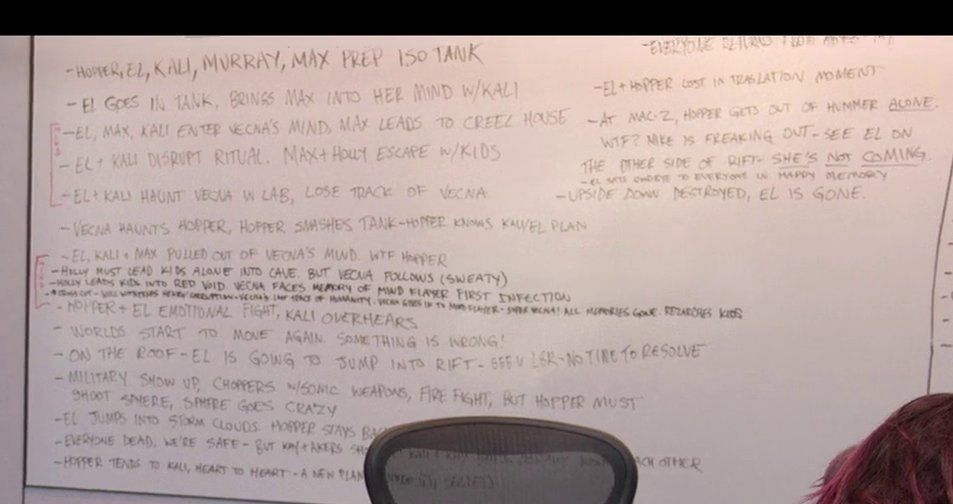 -HOPPER, EL, KALI, MURRAY, MAX PREP ISO TANK
-EL GOES IN TANK, BRINGS MAX INTO HER MIND W/KALI
-EL, MAX, KALI ENTER VECNA'S MIND, MAX LEADS TO CREEL HOUSE
-EL + KALI DISRUPT RITUAL. MAX+HOLLY ESCAPE W/KIDS
-EL+KALI HAUNT VECNA IN LAB, LOSE TRACK OF VECNA
-VECNA HAUNTS HOPPER, HOPPER SMASHES TANK-HOPPER KNOWS KALI/EL PLAN
-EL, KALI + MAX PULLED OUT OF VECNA'S MIND. WTF HOPPER
-HOLLY MUST LEAD KIDS ALONE INTO CAVE. BUT VECNA FOLLOWS (SWEATY)
-HOLLY LEADS KIDS INTO RED VOID. VECNA FACES MEMORY OF MIND FLAYER FIRST INFECTION
WILL WITNESSES HENRY VECNA'S LAST OF HUMANITY. ALL MEMORIES GONE. KIDS
-HOPPER + EL EMOTIONAL FIGHT, KALI OVERHEARS
-WORLDS START TO MOVE AGAIN. SOMETHING IS WRONG!
-ON THE ROOF-EL IS GOING TO JUMP INTO RIFT - NO TIME TO RESOLVE
-MILITARY SHOW UP, CHOPPERS W/SONIC WEAPONS, FIRE FIGHT, BUT HOPPER MUST
SHOOT SPHERE, SPHERE GOES CRAZY
-EL JUMPS INTO STORM CLOUDS. HOPPER STAYS
-EVERYONE DEAD, WE'RE SAFE - BUT KAY + AKERS
EACH OTHER
-HOPPER TENDS TO KALI, HEART TO HEART - A NEW PLAN
-EVERYONE RETURNS FROM
-EL+HOPPER LOST IN TRASLATION MOMENT
-AT MAC-Z, HOPPER GETS OUT OF HUMMER ALONE.
WTF? MIKE IS FREAKING OUT-SEE EL ON
THE OTHER SIDE OF RIFT- SHE'S NOT COMING.
-EL SAYS GOODBYE TO EVERYONE IN HAPPY MEMORY
-UPSIDE DOWN DESTROYED, EL IS GONE.